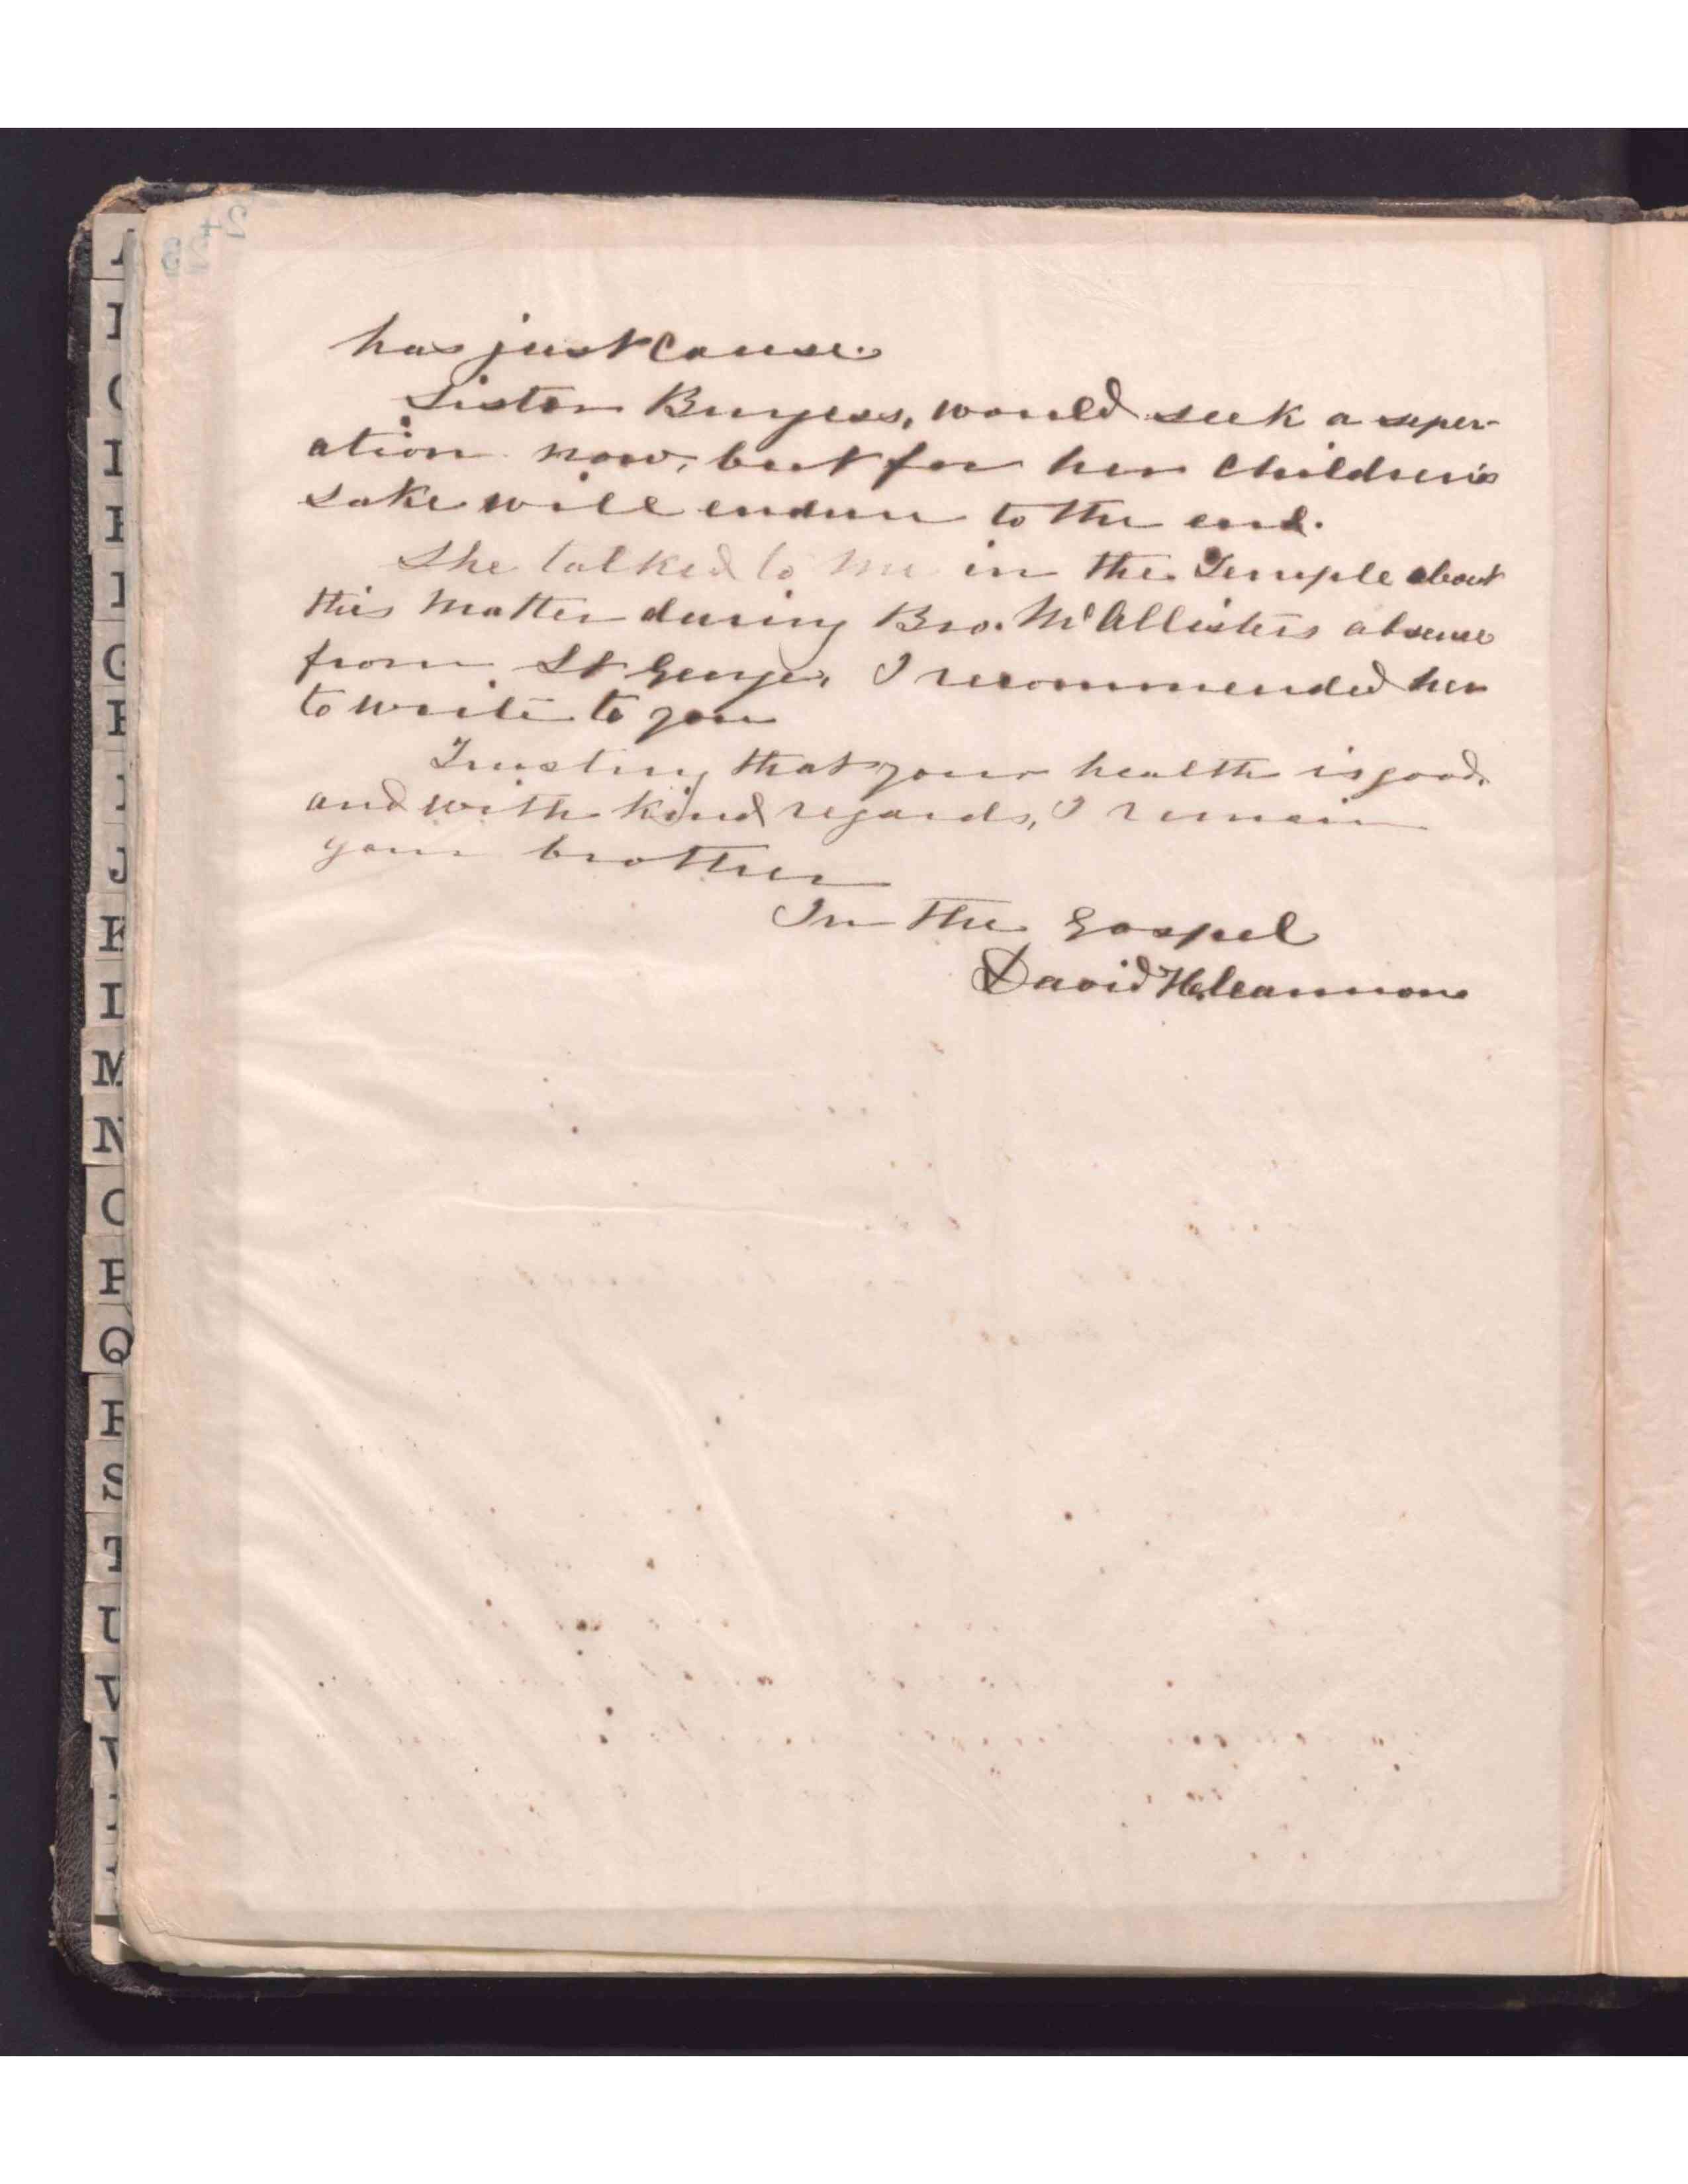 has just cause.
Sister Burgess, would seek a seper-
ation now, but for her Children's
sake will endure to the end.
She talked to me in the Temple about
this matter during Bro. McAllister's absense
from St George, I recommended her
to write to you
Trusting that your health is good,
and with kind regards, I remain
your brother
In the Gospel
David H. Cannon
24
25
A
C
G
J
K
M
N
P
Q
S